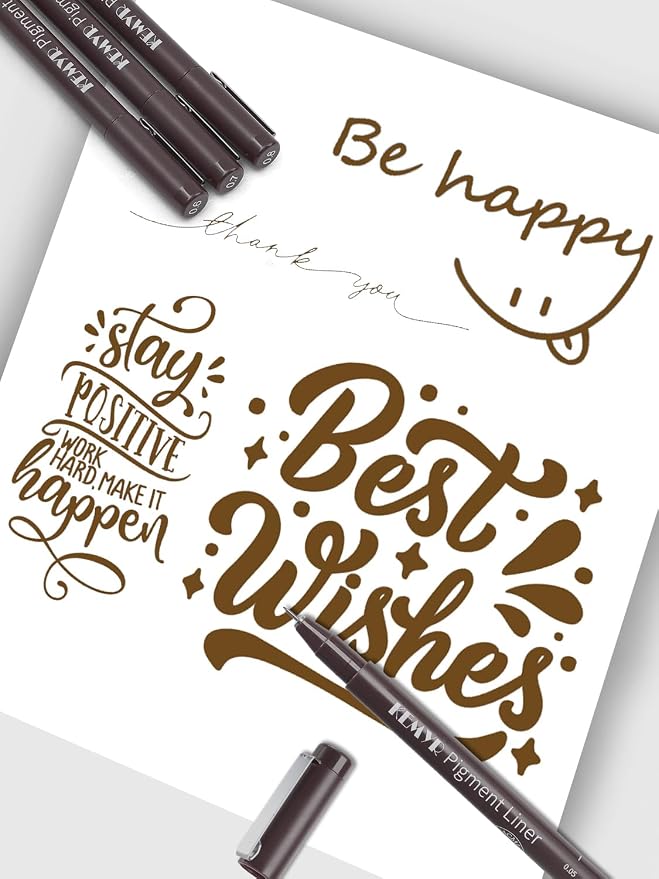 KEMYR Pigment
KEMYR Pigm
KEMYR Pigment
0.8
0.7
0.6
Be happy
thank you
stay
POSITIVE
WORK
HARD. MAKE IT
happen
Best
Wishes
KEMYR Pigment Liner
0.05